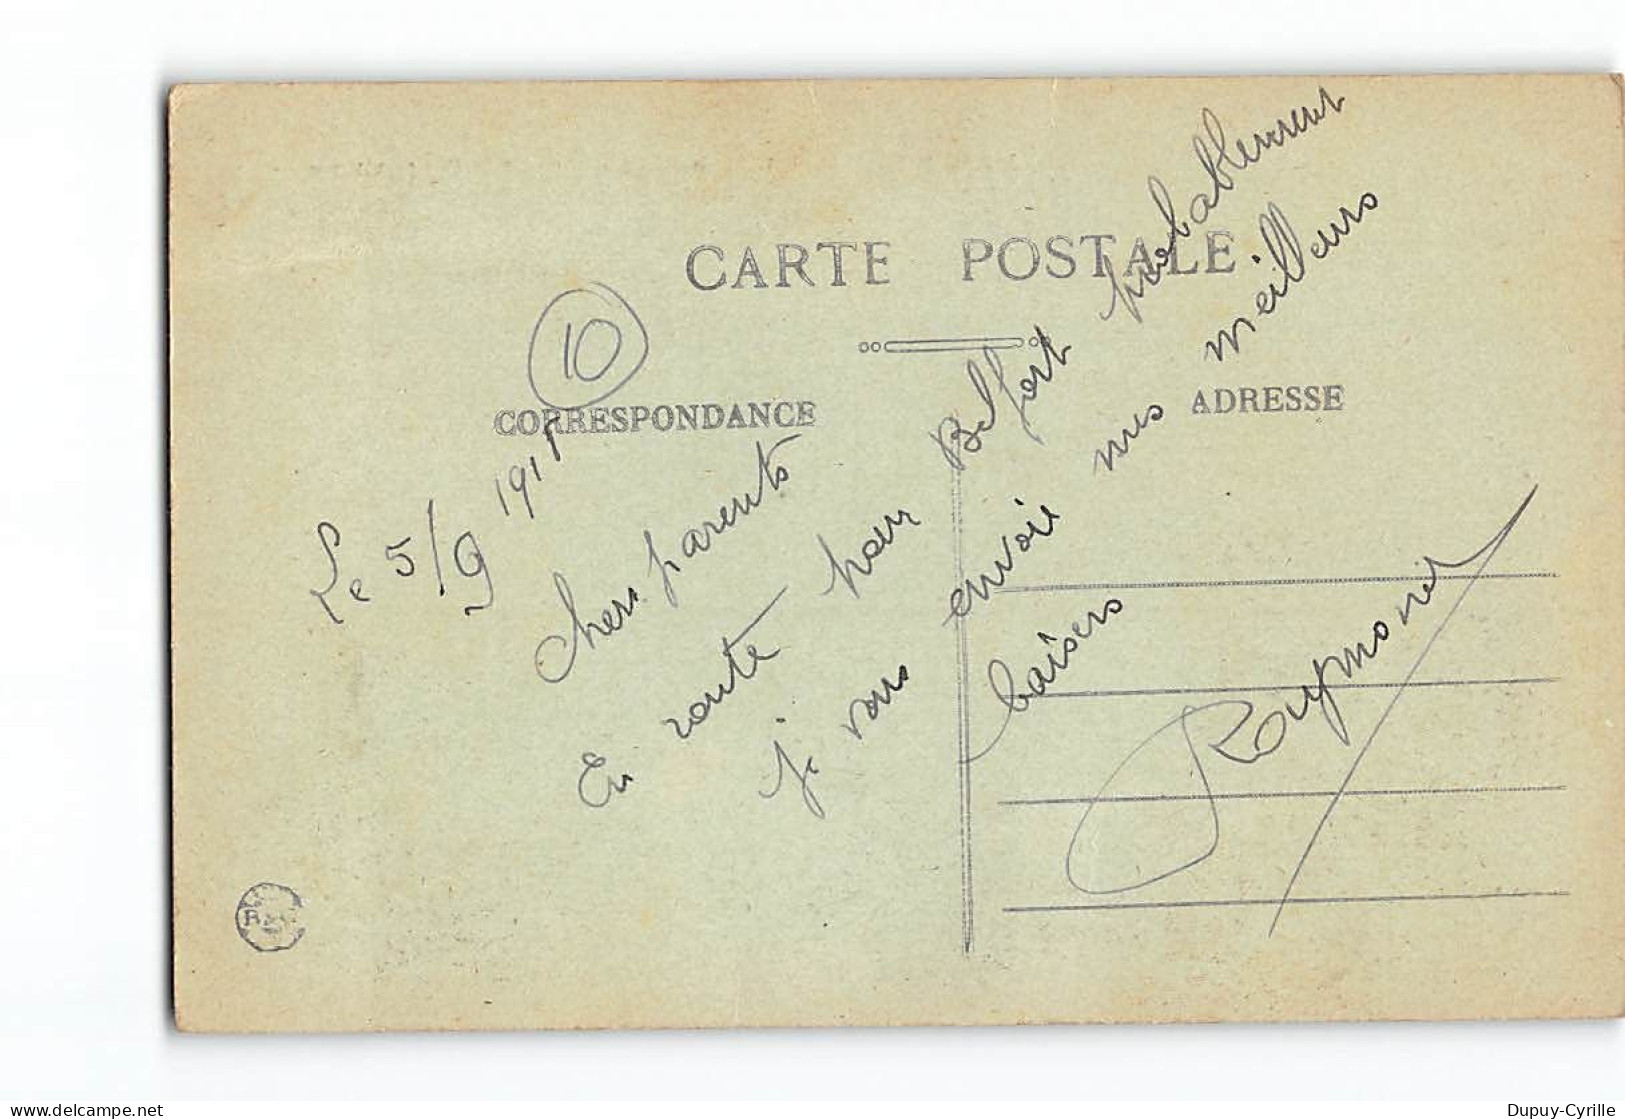 CARTE POSTALE
10
CORRESPONDANCE
ADRESSE
Le 5/9 191
Chers parents
En route pour Belfort probablement
je vous envoie mes meilleurs
baisers
Raymond
delcampe.net
Dupuy-Cyrille